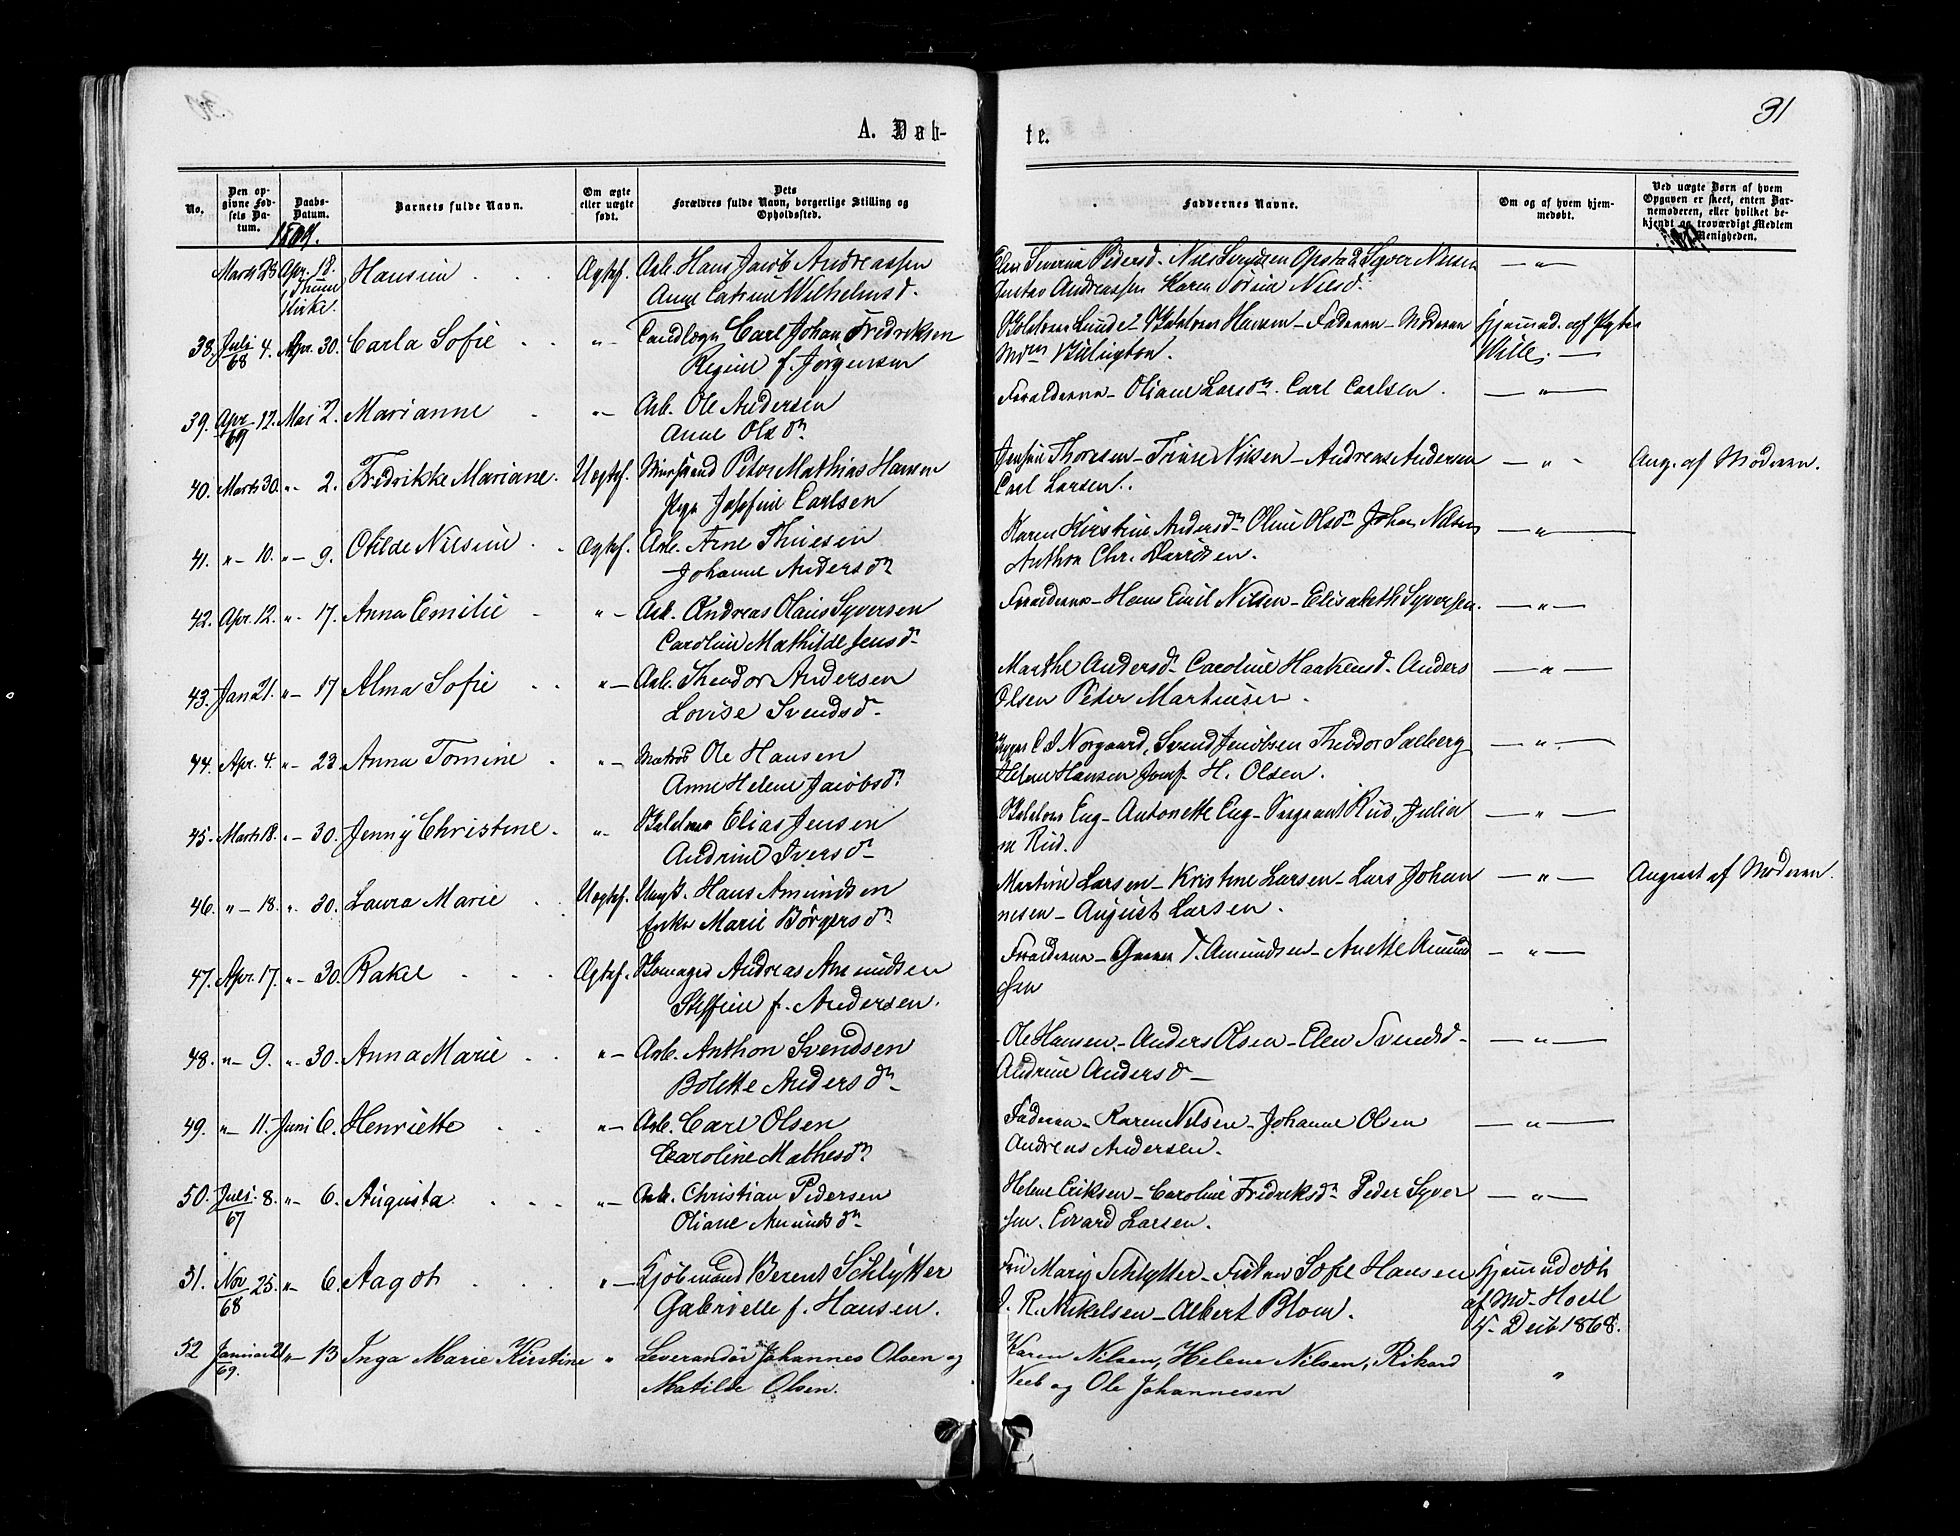 31
A. Døb-
te.
No.
Den op-
givne Fød-
sels Da-
tum.
Daabs-
Datum.
Barnets fulde Navn.
Om ægte
eller uægte
født.
Dets
Forældres fulde Navn, borgerlige Stilling og
Opholdssted.
Faddernes Navne.
Om og af hvem hjem-
medøbt.
Ved uægte Børn af hvem
Opgaven er skeet, enten Bar-
nemoderen, eller hvilket be-
kjendt og troværdigt Medlem
af Menigheden.
1869.
Marts 23 Apr. 18. Hansine Ægtef. Arb. Hans Jacob Andreassen Severine Pedersd. Syver Nilsen — " —
Thune Anne Catrine Wilhelmsd. Gustav Andreassen Karen Nilsd.
Kirke.
38. Juli 4. Apr. 30. Carla Sofie " — Carl Johan Fredriksen Lunde Hansen — Faderen — Moderen Hjemmed. af
68 f. Jørgensen Wille. —
39. Apr. 12. Mai 2. Marianne " — Arb. Ole Andersen Forældrene — Oliane Larsdn. Carl Carlsen. — " —
69 Anne Olsdn.
40. Marts 30. " 2. Fredrikke Mariane. Uægtef. Peter Mathias Hansen Thoresen — Nilsen — Andreas Andersen — " — Ang. af Moderen.
Pige Josefine Carlsen Carl Larsen.
41. " — 10. " — 9. Otilde Nilsine Ægtef. Arb. Arne Karen Kirstine Andersdn. Oline Olsdn. Johan Nilsen — " —
Johanne Andersdn. Anthon Chr. Davidsen.
42. Apr. 12. " 17. Anna Emilie " — Arb. Andreas Olaus Syversen Forældrene — Hans Emil Nilsen — Elisabeth Syversen. — " —
Caroline Mathilde Jensd.
43. Jan 21. " — 17 Alma Sofie " — Arb. Theodor Andersen Marthe Andersdn. Caroline Haakensd. Anders — " —
Lovise Svendsd. Olsen Peter Martinsen.
44. Apr. 4. " — 23 Anna Tomine " — Matros Ole Hansen C. Norgaard, Svend Jacobsen Theodor Solberg — " —
Anne Helene Jacobsdn. Helene Hansen H. Olsen.
45. Marts 18. " — 30. Jenny Christine. " — Elias Jensen Eng — Antonette Eng — Sergeant Rud, Julia — " —
Andrine Iversd. Rud.
46. " — 18. " 30. Laura Marie Uægtef. Ungk. Hans Amundsen Martine Larsen — Kristine Larsen — Lars Johan — " — Angivet af Moderen.
Enke Marie Børgersdn. nesen — August Larsen.
47. Apr. 17. " — 30. Rakel Ægtef. Andreas Amundsen Forældrene — T. Amundsen — Anette Amund — " —
f. Andersen. sen
48. " — 9. " 30. Anna Marie " — Arb. Anthon Svendsen Ole Hansen — Anders Olsen — Elen Svendsd. — " —
Bolette Andersdn. Andrine Andersd —
49. " — 11. Juni 6. Henriette " — Arb. Carl Olsen Faderen — Karen Nilsen — Johanne Olsen — " —
Caroline Mathesdn. Andreas Andersen.
50. Juli 8. " 6. Augusta " — Arb. Christian Pedersen Helene Eriksen — Caroline Fredriksdn. Peder Syver — " —
67 Oliane Amundsdn. sen. Edvard Larsen.
51. Nov 25. " 6. Aagot " — Kjøbmand Berent Schlytter Mary Schlytter — Sofie Hansen Hjemmedøbt
68 Gabrielle f. Hansen. R. Mikelsen — Albert Blom. af Md. Hoell
4. Decb 1868.
52 Januar 21 " 13 Inga Marie Kirstine " Leverandør Johannes Olsen og Karen Nilsen, Helene Nilsen, Rikard "
69. Matilde Olsen. og Ole Johannesen